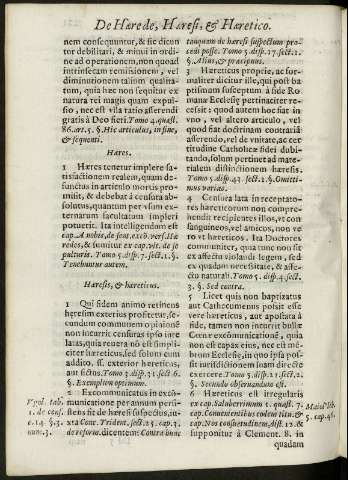 De Hærede, Hæresi, & Hæretico.
nem consequuntur, & sic dicun
tur debilitari, & minui in ordi-
ne ad operationem, non quoad
intrinsecam remissionem, vel
diminutionem talium qualita-
tum, quia hæc non sequitur ex
natura rei magis quam expul-
sio, nec est vlla ratio asserendi
gratis à Deo fieri. Tomo 4. quæst.
86. art. 5. §. Hic articulus, in fine,
& sequenti.
Hæres.
1 Hæres tenetur implere sa-
tisfactionem realem, quam de-
functus in articulo mortis pro-
misit, & debebat à censura ab-
solutus, quantum per vsum ex-
ternarum facultatum impleri
potuerit. Ita intelligendum est
cap. A nobis, de sent. excõ. vers. Hæ
redes, & sumitur ex cap. vlt. de se
pulturis. Tomo 5. disp. 7. sect. 1. §.
Tenebuntur autem.
Hæresis, & hæreticus.
1 Qui fidem animo retinens
hæresim exterius profitetur, se-
cundum communem opinionē
non incurrit censuras ipso iure
latas, quia reuera nõ est simpli-
citer hæreticus, sed solum cum
addito. ss. exterior hæreticus,
aut fictus. Tomo 5. disp. 31. sect. 6.
§. Exemplum optimum.
2 Excommunicatus in excõ-
municatione per annum persi-
stens fit de hæresi suspectus, iu-
xta Conc. Trident. sect. 25. cap. 3.
de reform. dicentem: Contra hunc
Vgol. tab.
1. de cens.
c. 14. §. 3
num. 3.
tanquam de hæresi suspectum pro-
cedi posse. Tomo 5. disp. 17. sect. 2.
§. Alius, & præcipuus.
3 Hæreticus proprie, ac for-
maliter dicitur ille, qui post ba-
ptismum susceptum à fide Ro-
manæ Ecclesiæ pertinaciter re-
cessit: quod autem hoc fiat in
vno, vel altero articulo, vel
quod fiat doctrinam contrariā
asserendo, vel de vnitate, ac cer
titudine Catholicæ fidei dubi-
tando, solum pertinet ad mate-
rialem distinctionem hæresis.
Tomo 5. disp. 43. sect. 1. §. Omitti-
mus varias.
4 Censura lata in receptato-
res hæreticorum non compre-
hendit recipientes illos, vt con
sanguineos, vel amicos, non ve
ro vt hæreticos. Ita Doctores
communiter, quia tunc non fit
ex affectu violandi legem, sed
ex quadam necessitate, & affe-
ctu naturali. Tomo 5. disp. 4. sect.
3. §. Sed contra.
5 Licet quis non baptizatus
aut Cathecumenus possit esse
vere hæreticus, aut apostata à
fide, tamen non incurrit bullæ
Cœnæ excõmunicationē, quia
non est capax eius, nec est mē-
brum Ecclesiæ, in quo ipsa pos-
sit iurisdictionem suam directe
exercere. Tomo 5. disp. 21. sect. 2.
§. Secundo obseruandum est.
6 Hæreticus est irregularis
ex cap. Saluberrimum 1. quæst. 7.
cap. Conuenientibus eodem titu. &
cap. Nos consuetudinem, dist. 12. &
supponitur à Clement. 8. in
quadam
Maiol. lib.
5. cap. 48.